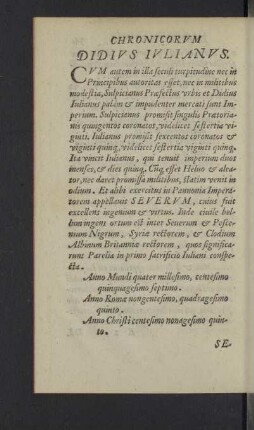 CHRONICORVM
DIDIVS IVLIANVS.
CVM autem in illa seculi turpitudine nec in
Principibus autoritas esset, nec in militibus
modestia, Sulpicianus Præfectus vrbis et Didius
Iulianus palàm & impudenter mercati sunt Im-
perium. Sulpicianus promisit singulis Prætoria-
nis quingentos coronatos, videlicet sestertia vi-
ginti. Iulianus promisit sexcentos coronatos &
viginti quinq; videlicet sestertia viginti quinq;
Ita vincit Iulianus, qui tenuit imperium duos
menses, & dies quinq; Cùm esset Helvo & aleator,
nec daret promissa militibus, statim venit in
odium. Et alibi exercitus in Pannonia Impera-
torem appellauit SEVERVM, cuius fuit
excellens ingenium & virtus. Inde ciuile bel-
lum ingens ortum est inter Seuerum & Pesce-
nium Nigrum, Syriæ rectorem, & Clodium
Albinum Britanniæ rectorem, quos significa-
runt Parelia in primo sacrificio Iuliani conspe-
cta.
Anno Mundi quater millesimo, centesimo
quinquagesimo septimo.
Anno Romæ nongentesimo, quadragesimo
quinto.
Anno Christi centesimo nonagesimo quin-
to.
SE-